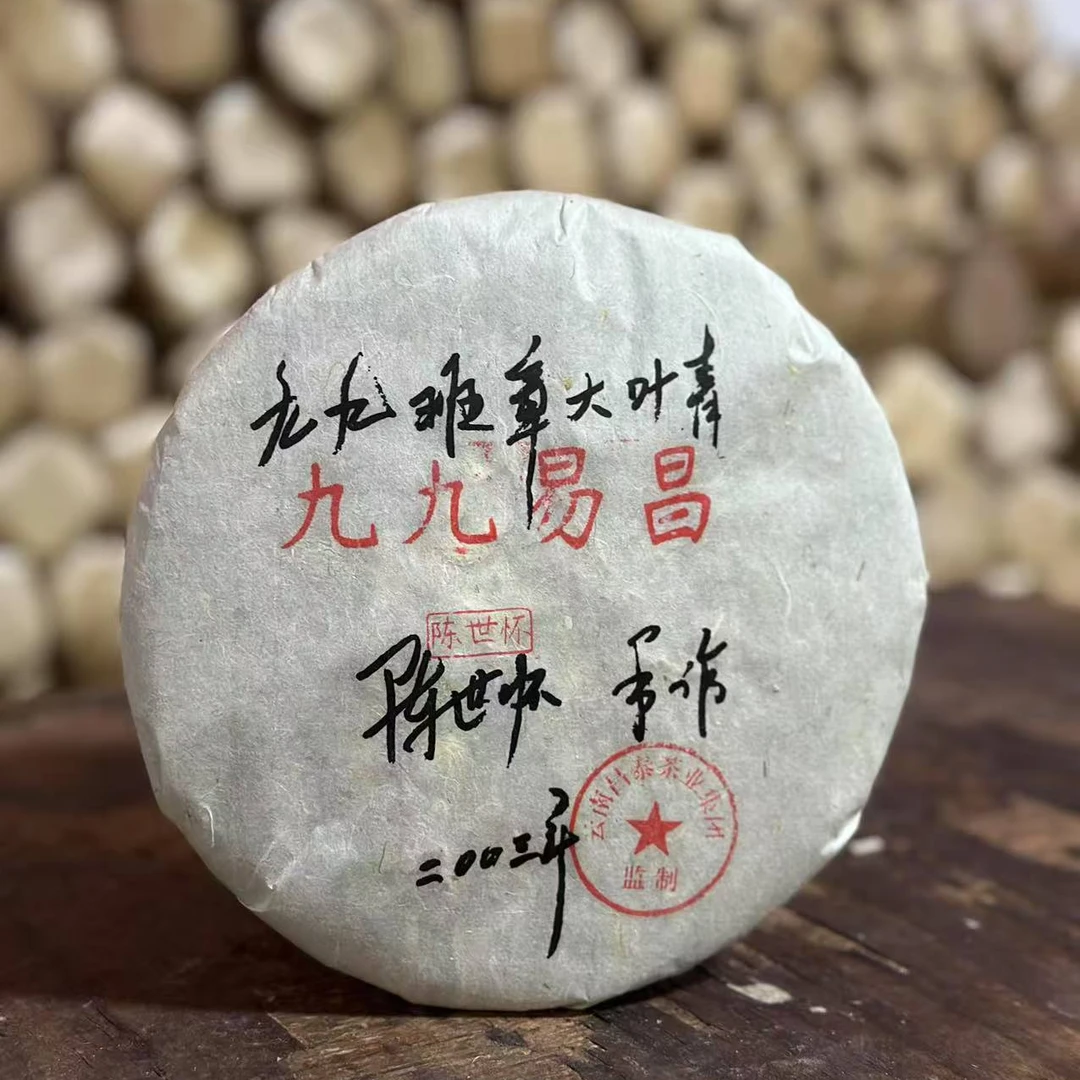 九九班章大叶青
九九易昌
陈世怀
陈世怀 手作
二〇〇三年
云南昌泰茶业集团
监制